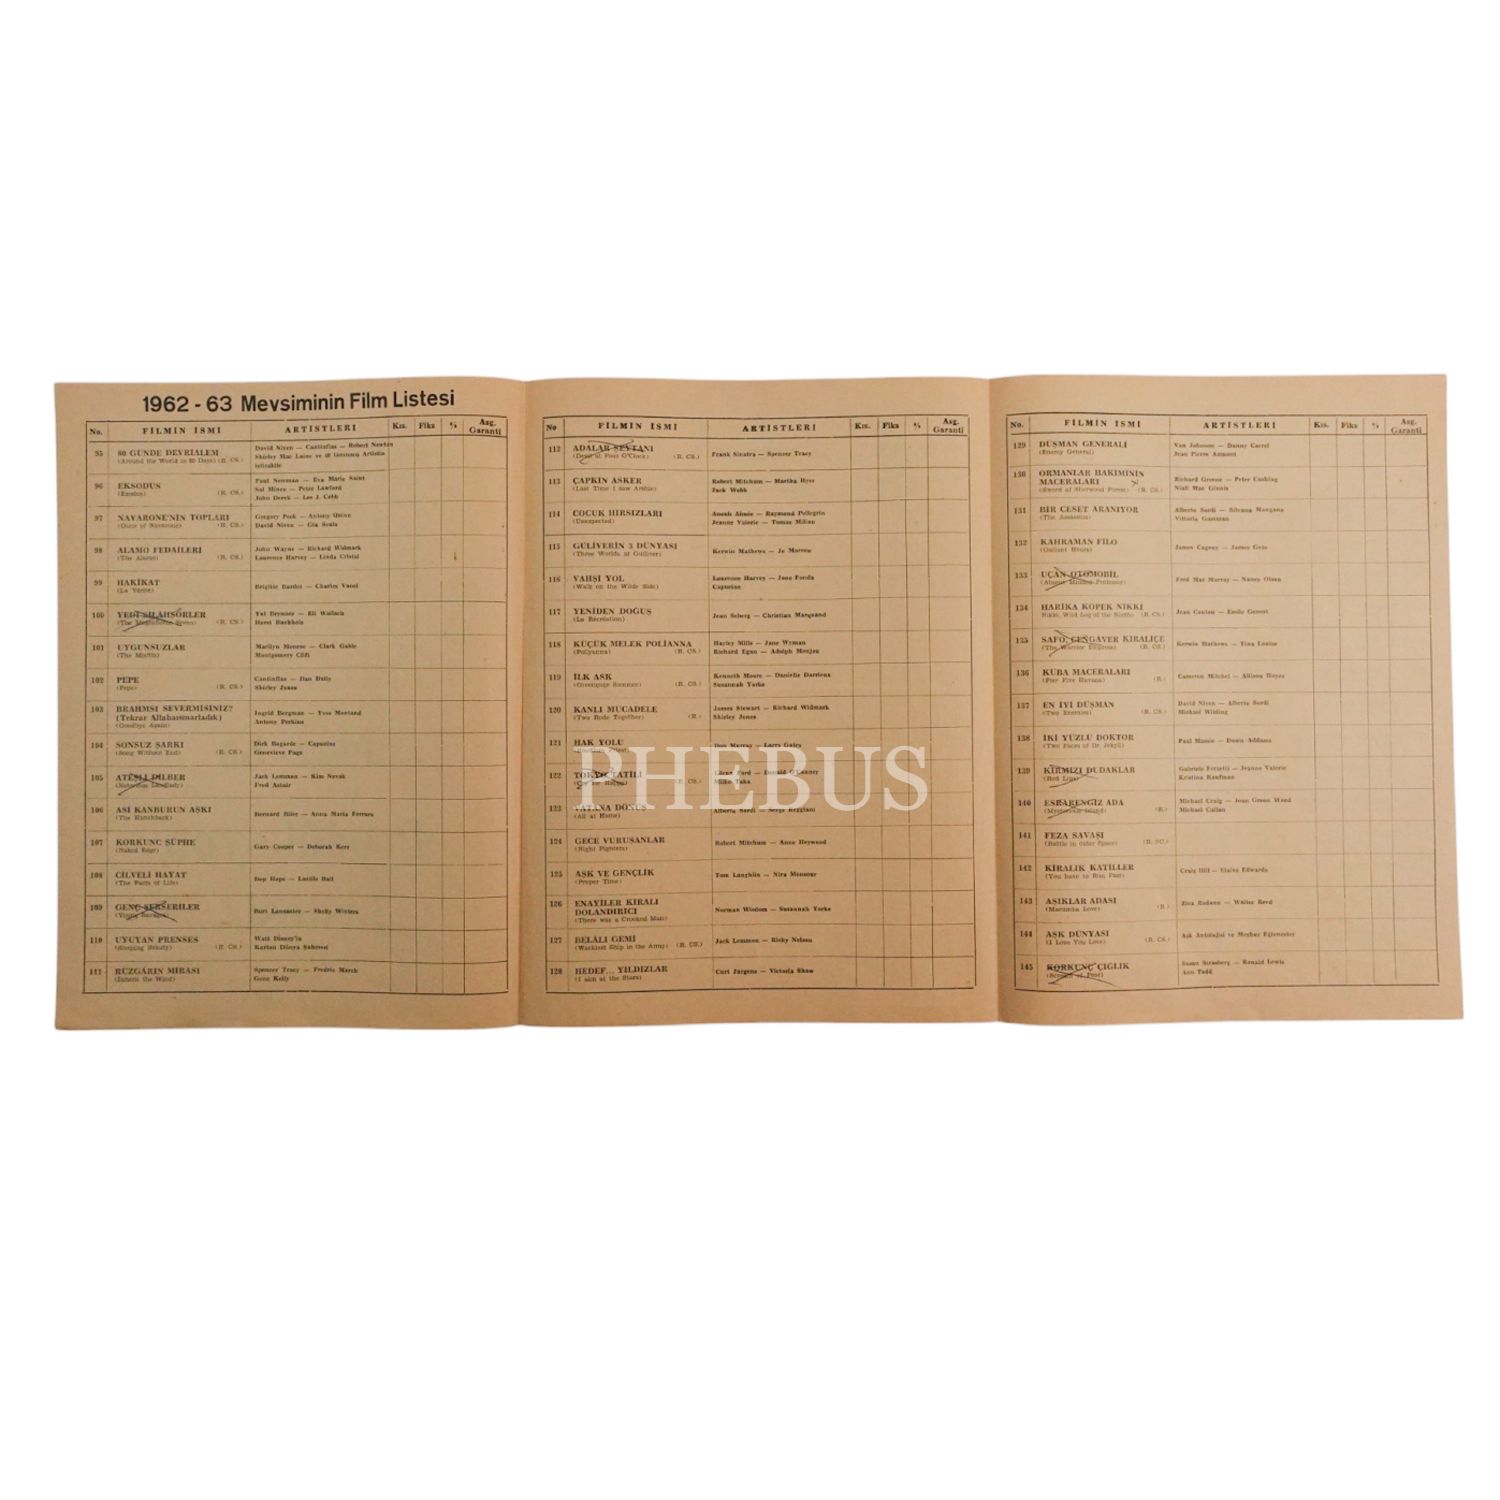 1962 - 63 Mevsiminin Film Listesi
No. FİLMİN İSMİ ARTİSTLERİ Kıs. Fiks % Asg. Garanti
95 80 GÜNDE DEVRİALEM David Niven — Cantinflas — Robert Newton
(Around the World in 80 Days) (R. CS.) Shirley Mac Laine ve
96 EKSODUS Paul Newman — Eva Marie Saint
(Exodus) (R. CS.) Sal Mineo — Peter Lawford
John Derek — Lee J. Cobb
97 NAVARONE'NİN TOPLARI Gregory Peck — Antony Quinn
(Guns of Navarone) (R. CS.) David Niven — Gia Scala
98 ALAMO FEDAİLERİ John Wayne — Richard Widmark
(The Alamo) (R. CS.) Laurence Harvey — Linda Cristal
99 HAKİKAT Brigitte Bardot — Charles Vanel
(La Vérité)
100 YEDİ SİLAHŞÖRLER Yul Brynner — Eli Wallach
(The Magnificent Seven) (R. CS.) Horst Buchholz
101 UYGUNSUZLAR Marilyn Monroe — Clark Gable
(The Misfits) Montgomery Clift
102 PEPE Cantinflas — Dan Daily
(Pepe) (R. CS.) Shirley Jones
103 BRAHMSI SEVERMİSİNİZ?
(Tekrar Allahaısmarladık) Ingrid Bergman — Yves Montand
(Goodbye Again) Antony Perkins
104 SONSUZ ŞARKI Dirk Bogarde — Capucine
(Song Without End) (R. CS.) Genevieve Page
105 ATEŞLİ DİLBER Jack Lemmon — Kim Novak
(Notorious Landlady) Fred Astair
106 ASİ KANBURUN AŞKI Bernard Blier — Anna Maria Ferrero
(The Hunchback)
107 KORKUNÇ ŞÜPHE Gary Cooper — Deborah Kerr
(Naked Edge)
108 CİLVELİ HAYAT Bop Hope — Lucille Ball
(The Facts of Life)
109 GENÇ SERSERİLER Burt Lancaster — Shelly Winters
(Young Savages)
110 UYUYAN PRENSES Walt Disney'in
(Sleeping Beauty) (R. CS.) Karton Dünya Şaheseri
111 RÜZGÂRIN MİRASI Spencer Tracy — Fredric March
(Inherit the Wind) Gene Kelly
No FİLMİN İSMİ ARTİSTLERİ Kıs. Fiks % Asg. Garanti
112 ADALAR ŞEYTANI Frank Sinatra — Spencer Tracy
(Devil at Four O'Clock) (R. CS.)
113 ÇAPKIN ASKER Robert Mitchum — Martha Hyer
(Last Time I saw Archie) Jack Webb
114 ÇOCUK HIRSIZLARI Anouk Aimée — Raymond Pellegrin
(Unexpected) Jeanne Valerie — Tomas Milian
115 GÜLİVERİN 3 DÜNYASI Kerwin Mathews — Jo Morrow
(Three Worlds of Gulliver)
116 VAHŞİ YOL Laurence Harvey — Jane Fonda
(Walk on the Wilde Side) Capucine
117 YENİDEN DOĞUŞ Jean Seberg — Christian Marquand
(La Récréation)
118 KÜÇÜK MELEK POLİANNA Hayley Mills — Jane Wyman
(Pollyanna) (R. CS.) Richard Egan — Adolph Menjou
119 İLK AŞK Kenneth Moore — Danielle Darrieux
(Greengage Summer) (R. CS.) Susannah Yorke
120 KANLI MÜCADELE James Stewart — Richard Widmark
(Two Rode Together) (R.) Shirley Jones
121 HAK YOLU Don Murray — Larry Gates
122 TOKYO TATİLİ Glenn Ford — Donald O'Connor
(Cry for Happy) (R. CS.) Miiko Taka
123 VATANA DÖNÜŞ Alberto Sordi — Serge Reggiani
(All at Home)
124 GECE VURUŞANLAR Robert Mitchum — Anne Heywood
(Night Fighters)
125 AŞK VE GENÇLİK Tom Laughlin — Nira Monsour
(Proper Time)
126 ENAYİLER KIRALI
DOLANDIRICI Norman Wisdom — Susannah Yorke
(There was a Crooked Man)
127 BELÂLI GEMİ Jack Lemmon — Ricky Nelson
(Wackiest Ship in the Army) (R. CS.)
128 HEDEF... YILDIZLAR Curt Jurgens — Victoria Shaw
(I aim at the Stars)
No. FİLMİN İSMİ ARTİSTLERİ Kıs. Fiks % Asg. Garanti
129 DÜŞMAN GENERALİ Van Johnson — Danny Carrel
(Enemy General) Jean Pierre Aumont
130 ORMANLAR HAKİMİNİN
MACERALARI Richard Greene — Peter Cushing
(Sword of Sherwood Forest) (R. CS.) Niall Mac Ginnis
131 BİR CESET ARANIYOR Alberto Sordi — Silvana Mangano
(The Assassin) Vittorio Gassman
132 KAHRAMAN FİLO James Cagney — James
(Gallant Hours)
133 UÇAN OTOMOBİL Fred Mac Murray — Nancy Olson
134 HARİKA KÖPEK NİKKİ Jean Coutou — Emile Genest
Nikki, Wild Dog of the North) (R. CS.)
135 SAFO, CENGÂVER KIRALİÇE Kerwin Mathews — Tina Louise
(The Warrior Empress) (R. CS.)
136 KÜBA MACERALARI Cameron Mitchel — Allison Hayes
(Pier Five Havana) (R.)
137 EN İYİ DÜŞMAN David Niven — Alberto Sordi
(Two Enemies) (R. CS.) Michael Wilding
138 İKİ YÜZLÜ DOKTOR Paul Massie — Dawn Addams
(Two Faces of Dr. Jekyll)
139 KIRMIZI DUDAKLAR Gabriele Ferzetti — Jeanne Valerie
(Red Lips) Kristina Kaufman
140 ESRARENGİZ ADA Michael Craig — Joan Green Wood
(Mysterious Island) (R.) Michael Callan
141 FEZA SAVAŞI
(Battle in Outer Space) (R. SC.)
142 KİRALIK KATİLLER Craig Hill — Elaine Edwards
(You have to Run Fast)
143 AŞIKLAR ADASI Ziva Rodann — Walter Reed
(Macumba Love) (R.)
144 AŞK DÜNYASI Aşk Antolojisi ve Meşhur Eğlenceler
(I Love You Love) (R. CS.)
145 KORKUNÇ ÇIĞLIK Susan Strasberg — Ronald Lewis
(Scream of Fear) Ann Todd
PHEBUS